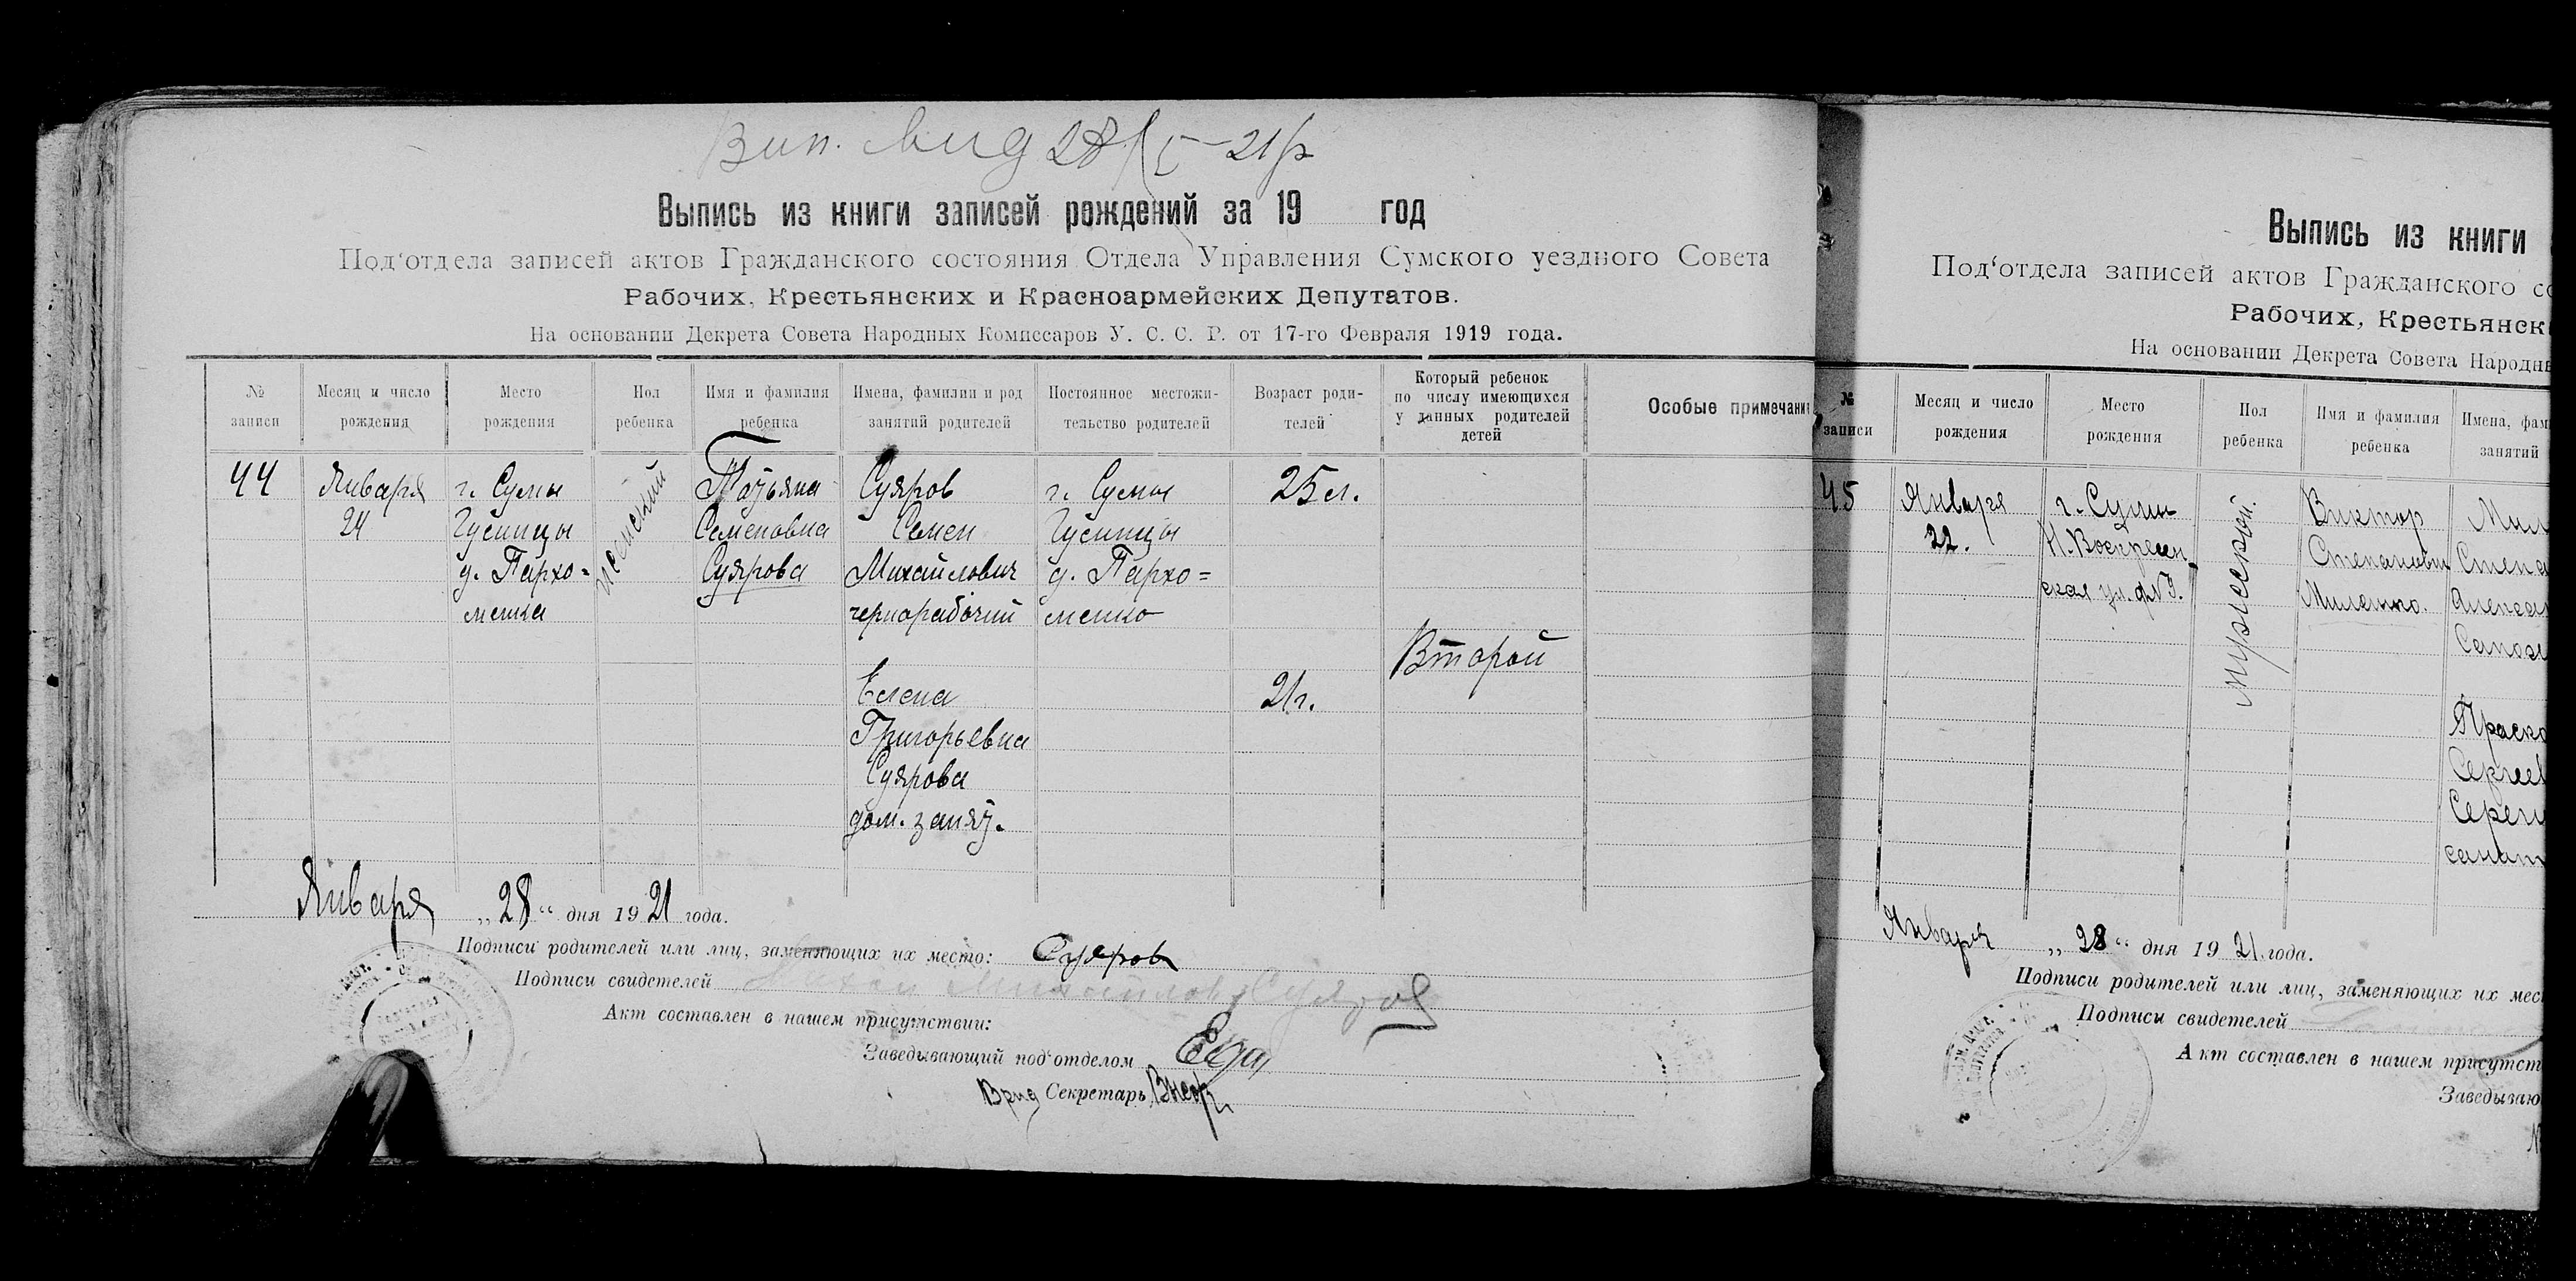 Вип. 28/I-21р
Выпись из книги записей рождений за 19 год
Под‘отдела записей актов Гражданского состояния Отдела Управления Сумского уездного Совета
Рабочих, Крестьянских и Красноармейских Депутатов.
На основании Декрета Совета Народных Комиссаров У. С. С. Р. от 17-го Февраля 1919 года.
№ записи
Месяц и число рождения
Место рождения
Пол ребенка
Имя и фамилия ребенка
Имена, фамилии и род занятий родителей
Постоянное местожи-
тельство родителей
Возраст роди-
телей
Который ребенок
по числу имеющихся
у данных родителей
детей
Особые примечания
44
Января
24
г. Сумы
Гусинцы
д. Пархо=
менка
женский
Татьяна
Семеновна
Суярова
Суяров
Семен
Михайлович
чернорабочий
г. Сумы
Гусинцы
д. Пархо=
менко
25 л.
Второй
Елена
Григорьевна
Суярова
дом. занят.
21 г.
Января „28“ дня 1921 года.
Подписи родителей или лиц, заменяющих их место: Суяров
Подписи свидетелей Суяров
Акт составлен в нашем присутствии:
Заведывающий под‘отделом
Врид Секретарь
Выпись из книги
Под‘отдела записей актов Гражданского со
Рабочих, Крестьянск
На основании Декрета Совета Народн
№ записи
Месяц и число рождения
Место рождения
Пол ребенка
Имя и фамилия ребенка
Имена, фам
занятий
45
Января
22.
г. Сумы
Н. Воскресен
ская ул. д№3.
мужеской.
Виктор
Степанович
Миленко.
Мил
Степа
Алексан
Сапож
Праско
Сергеев
Серегі
санит
Января „28“ дня 1921 года.
Подписи родителей или лиц, заменяющих их мес
Подписи свидетелей
Акт составлен в нашем присутст
Заведываю